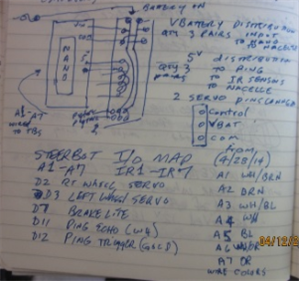 BATTERY IN
V BATTERY DISTRIBUTION
3 PAIRS INPUT
TO NANO
NACELLE
NANO
5V DISTRIBUTION
3 TO PING
TO IR SENSORS
TO NACELLE
A1-A7
WIRED
TO TBS
2 SERVO
Control
VBAT
COM
STEERBOT I/O MAP
from
4/28/14
A1-A7 IR1-IR7
A1 WH/BRN
D2 RT WHEEL SERVO
A2 BRN
D3 LEFT WHEEL SERVO
A3 WH/BL
D7 BRAKE LITE
A4 WH
D11 PING ECHO (WH)
A5 BL
D12 PING TRIGGER (GOLD)
A6 WH/OR
A7 OR
WIRE COLORS
04/12/